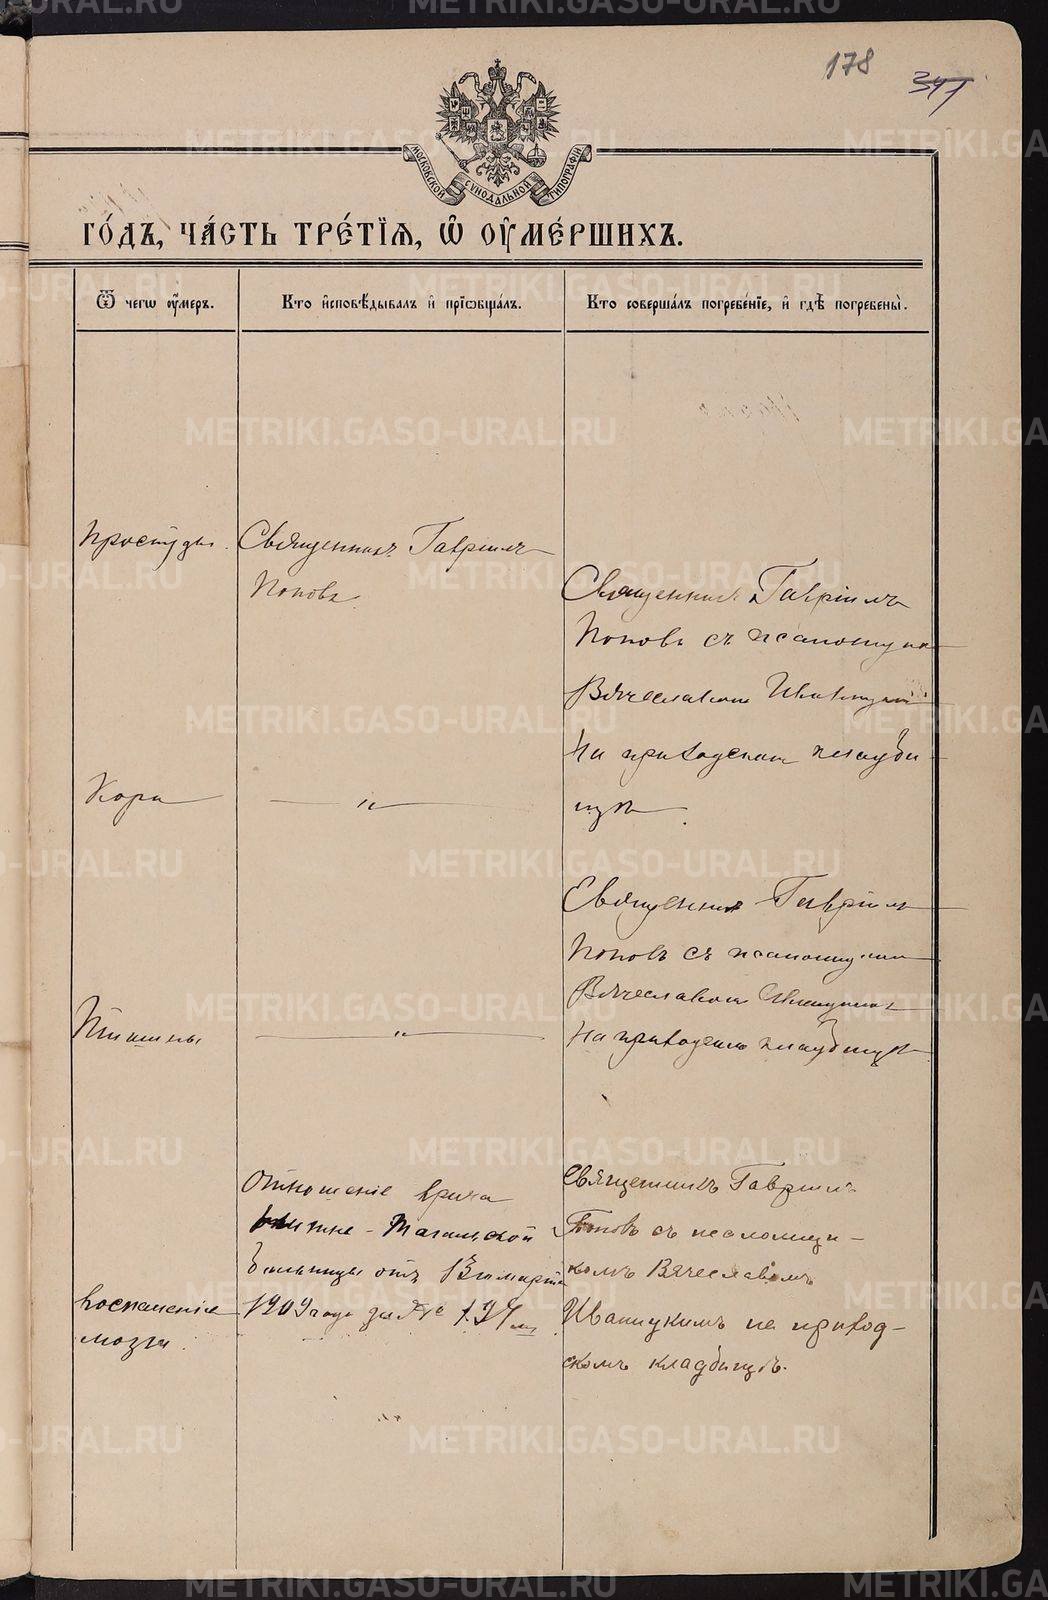 178
347
МОСКОВСКОЙ СѴНОДАЛЬНОЙ ТИПОГРАФІИ
ГО́ДЪ, ЧА́СТЬ ТРЕ́ТІЯ, Ѡ҆ ОУ҆МЕ́РШИХЪ.
Ѿ чегѡ оу҆́меръ.
Кто и҆сповѣ́дывалъ и҆ прїѡбща́лъ.
Кто соверша́лъ погребе́нїе, и҆ гдѣ̀ погребены̀.
Простуды.
Священникъ Гавріилъ
Поповъ.
Священникъ Гавріилъ
Поповъ съ псаломщико
Вячеславом Ивановичем
На приходском кладби-
щѣ.
Кори
"
Священник Гавріилъ
Поповъ съ псаломщиком
Вячеславом
На приходском кладбищѣ
"
Отношеніе врача
Нижне-Тагильской
больницы отъ марта
1909 года за № 134
Воспаленіе
мозга.
Священникъ Гавріилъ
Поповъ съ псаломщи-
комъ Вячеславомъ
Иваницкимъ на приход-
скомъ кладбищѣ.
METRIKI.GASO-URAL.RU